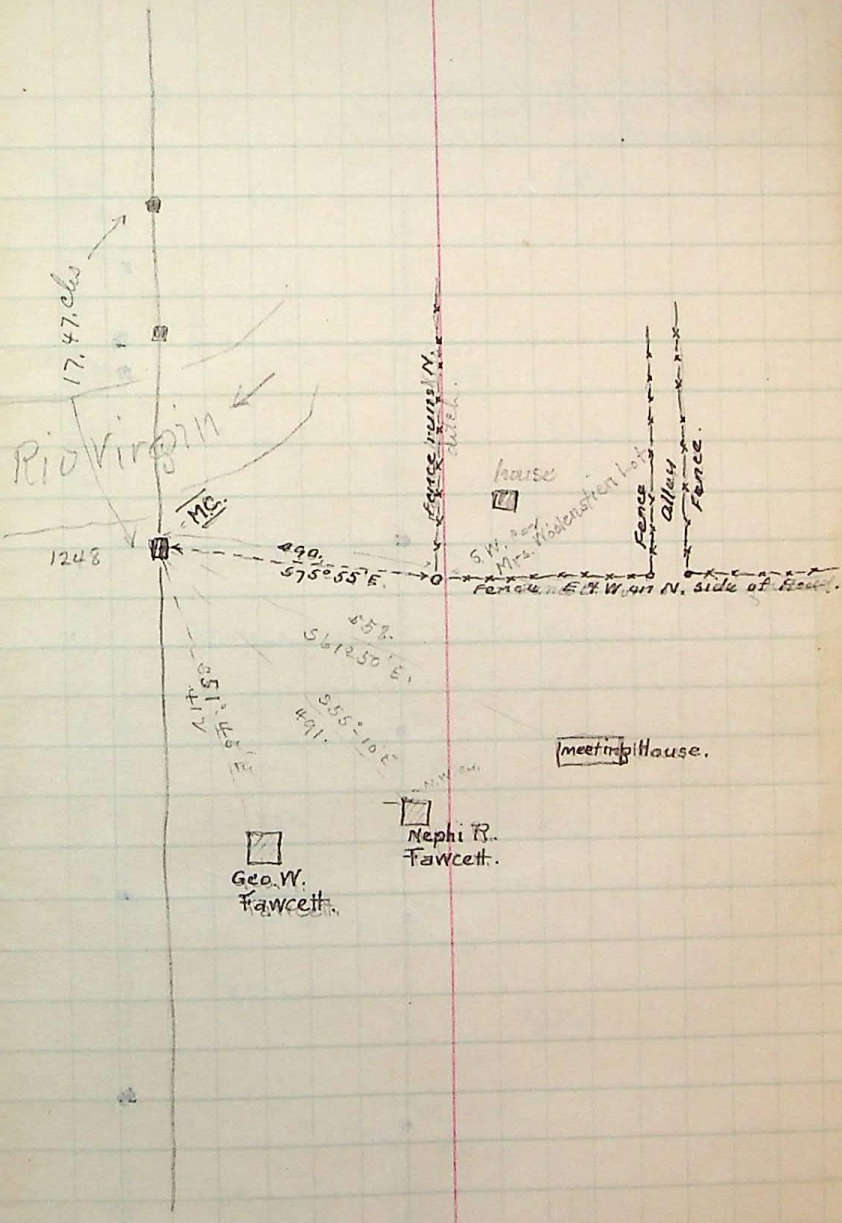 17.47. Chs
Rio Virgin
M.C.
1248
490.
S 75° 55' E.
Fence runs N.
ditch.
house
S.W. cor
Mrs. Woolenstien Lot
Fence
alley
Fence.
Fence E & W on N. side of Road.
558.
S 61° 50' E.
S 55° - 10' E
491.
417
N.W. cor.
meeting House.
Nephi R.
Fawcett.
Geo. W.
Fawcett.